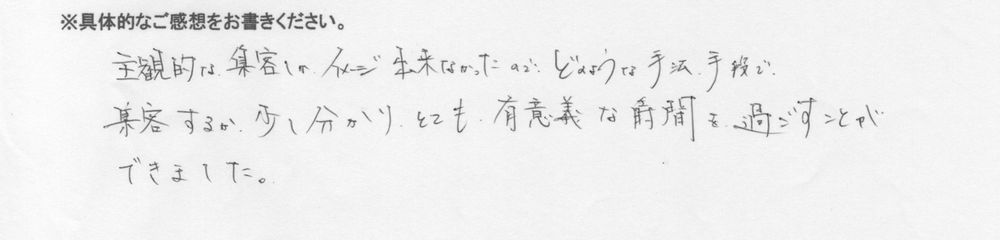 ※具体的なご感想をお書きください。
主観的な、集客しか、イメージ出来なかったので、どのような手法、手段で、
集客するか、少し分かり、とても、有意義な時間を、過ごすことが
できました。